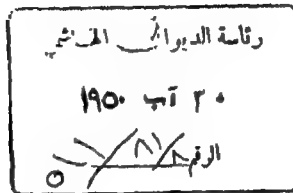 رئاسة الديوان الهاشمي
٣٠ آب ١٩٥٠
الرقم